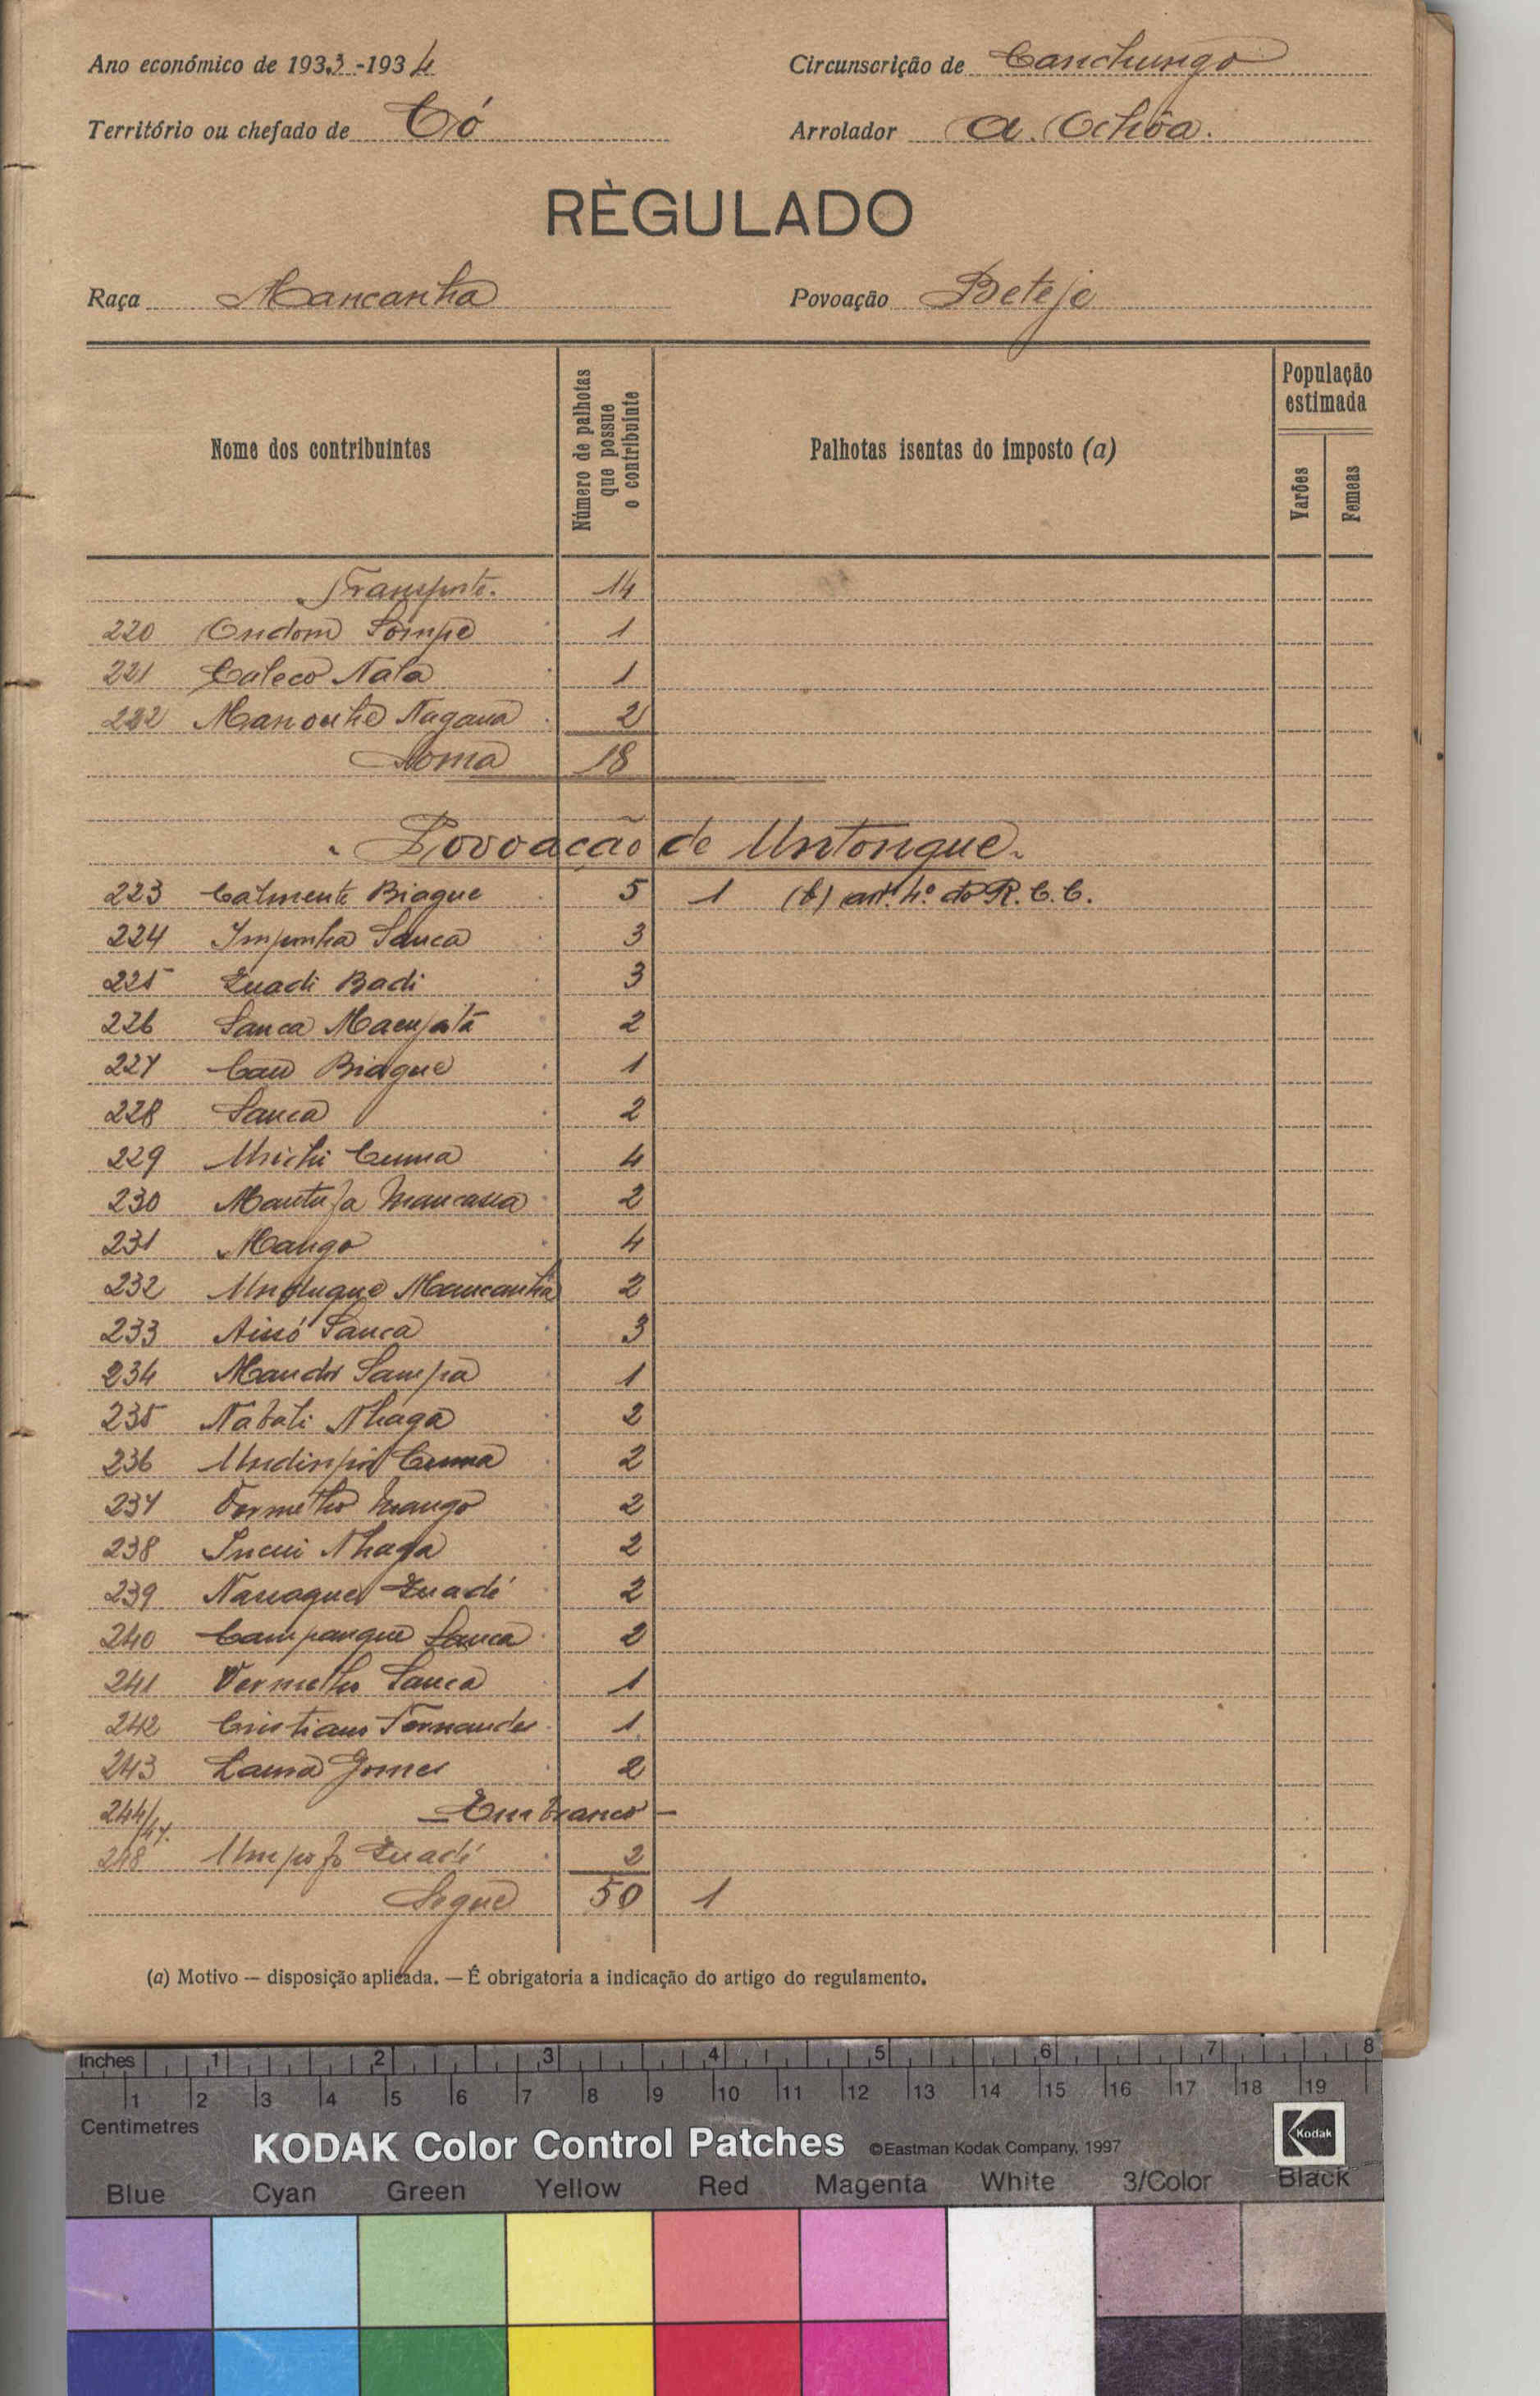 Ano económico de 1933-1934 Circunscrição de Canchungo
Território ou chefado de Có Arrolador A. Ochôa.
RÈGULADO
Raça Mancanha Povoação Beteje
Nome dos contribuintes
Número de palhotas que possue o contribuinte
Palhotas isentas do imposto (a)
População estimada
Varões
Femeas
Transporte. 14
220 Ondom Sompe 1
221 Caleco Nala 1
222 Manouhe Nagana 2
Soma 18
Povoação de Untongue.
223 Calmente Biague 5 1 (b) art. 4º do R. C. C.
224 Impinha Sanca 3
225 Zuadi Badi 3
226 Sanca 2
227 Cau Biague 1
228 Sanca 2
229 Unichi Cuma 4
230 Mantufa Mancassa 2
231 Mango 4
232 Mancanha 2
233 Aissó Sanca 3
234 Mando Sampa 1
235 Nabali Nhaga 2
236 Cuma 2
237 Vermelho Mango 2
238 Incui Nhaga 2
239 Nassague Zuadé 2
240 Campangue Sanca 2
241 Vermelho Sanca 1
242 Cristiano Fernandes 1
243 Lama Gomes 2
244/47. — Em branco —
248 Umpofo Zuadi 2
Segue 50 1
(a) Motivo — disposição aplicada. — É obrigatoria a indicação do artigo do regulamento.
Inches 1 2 3 4 5 6 7 8
1 2 3 4 5 6 7 8 9 10 11 12 13 14 15 16 17 18 19
Centimetres
KODAK Color Control Patches ©Eastman Kodak Company, 1997 Kodak
Blue Cyan Green Yellow Red Magenta White 3/Color Black